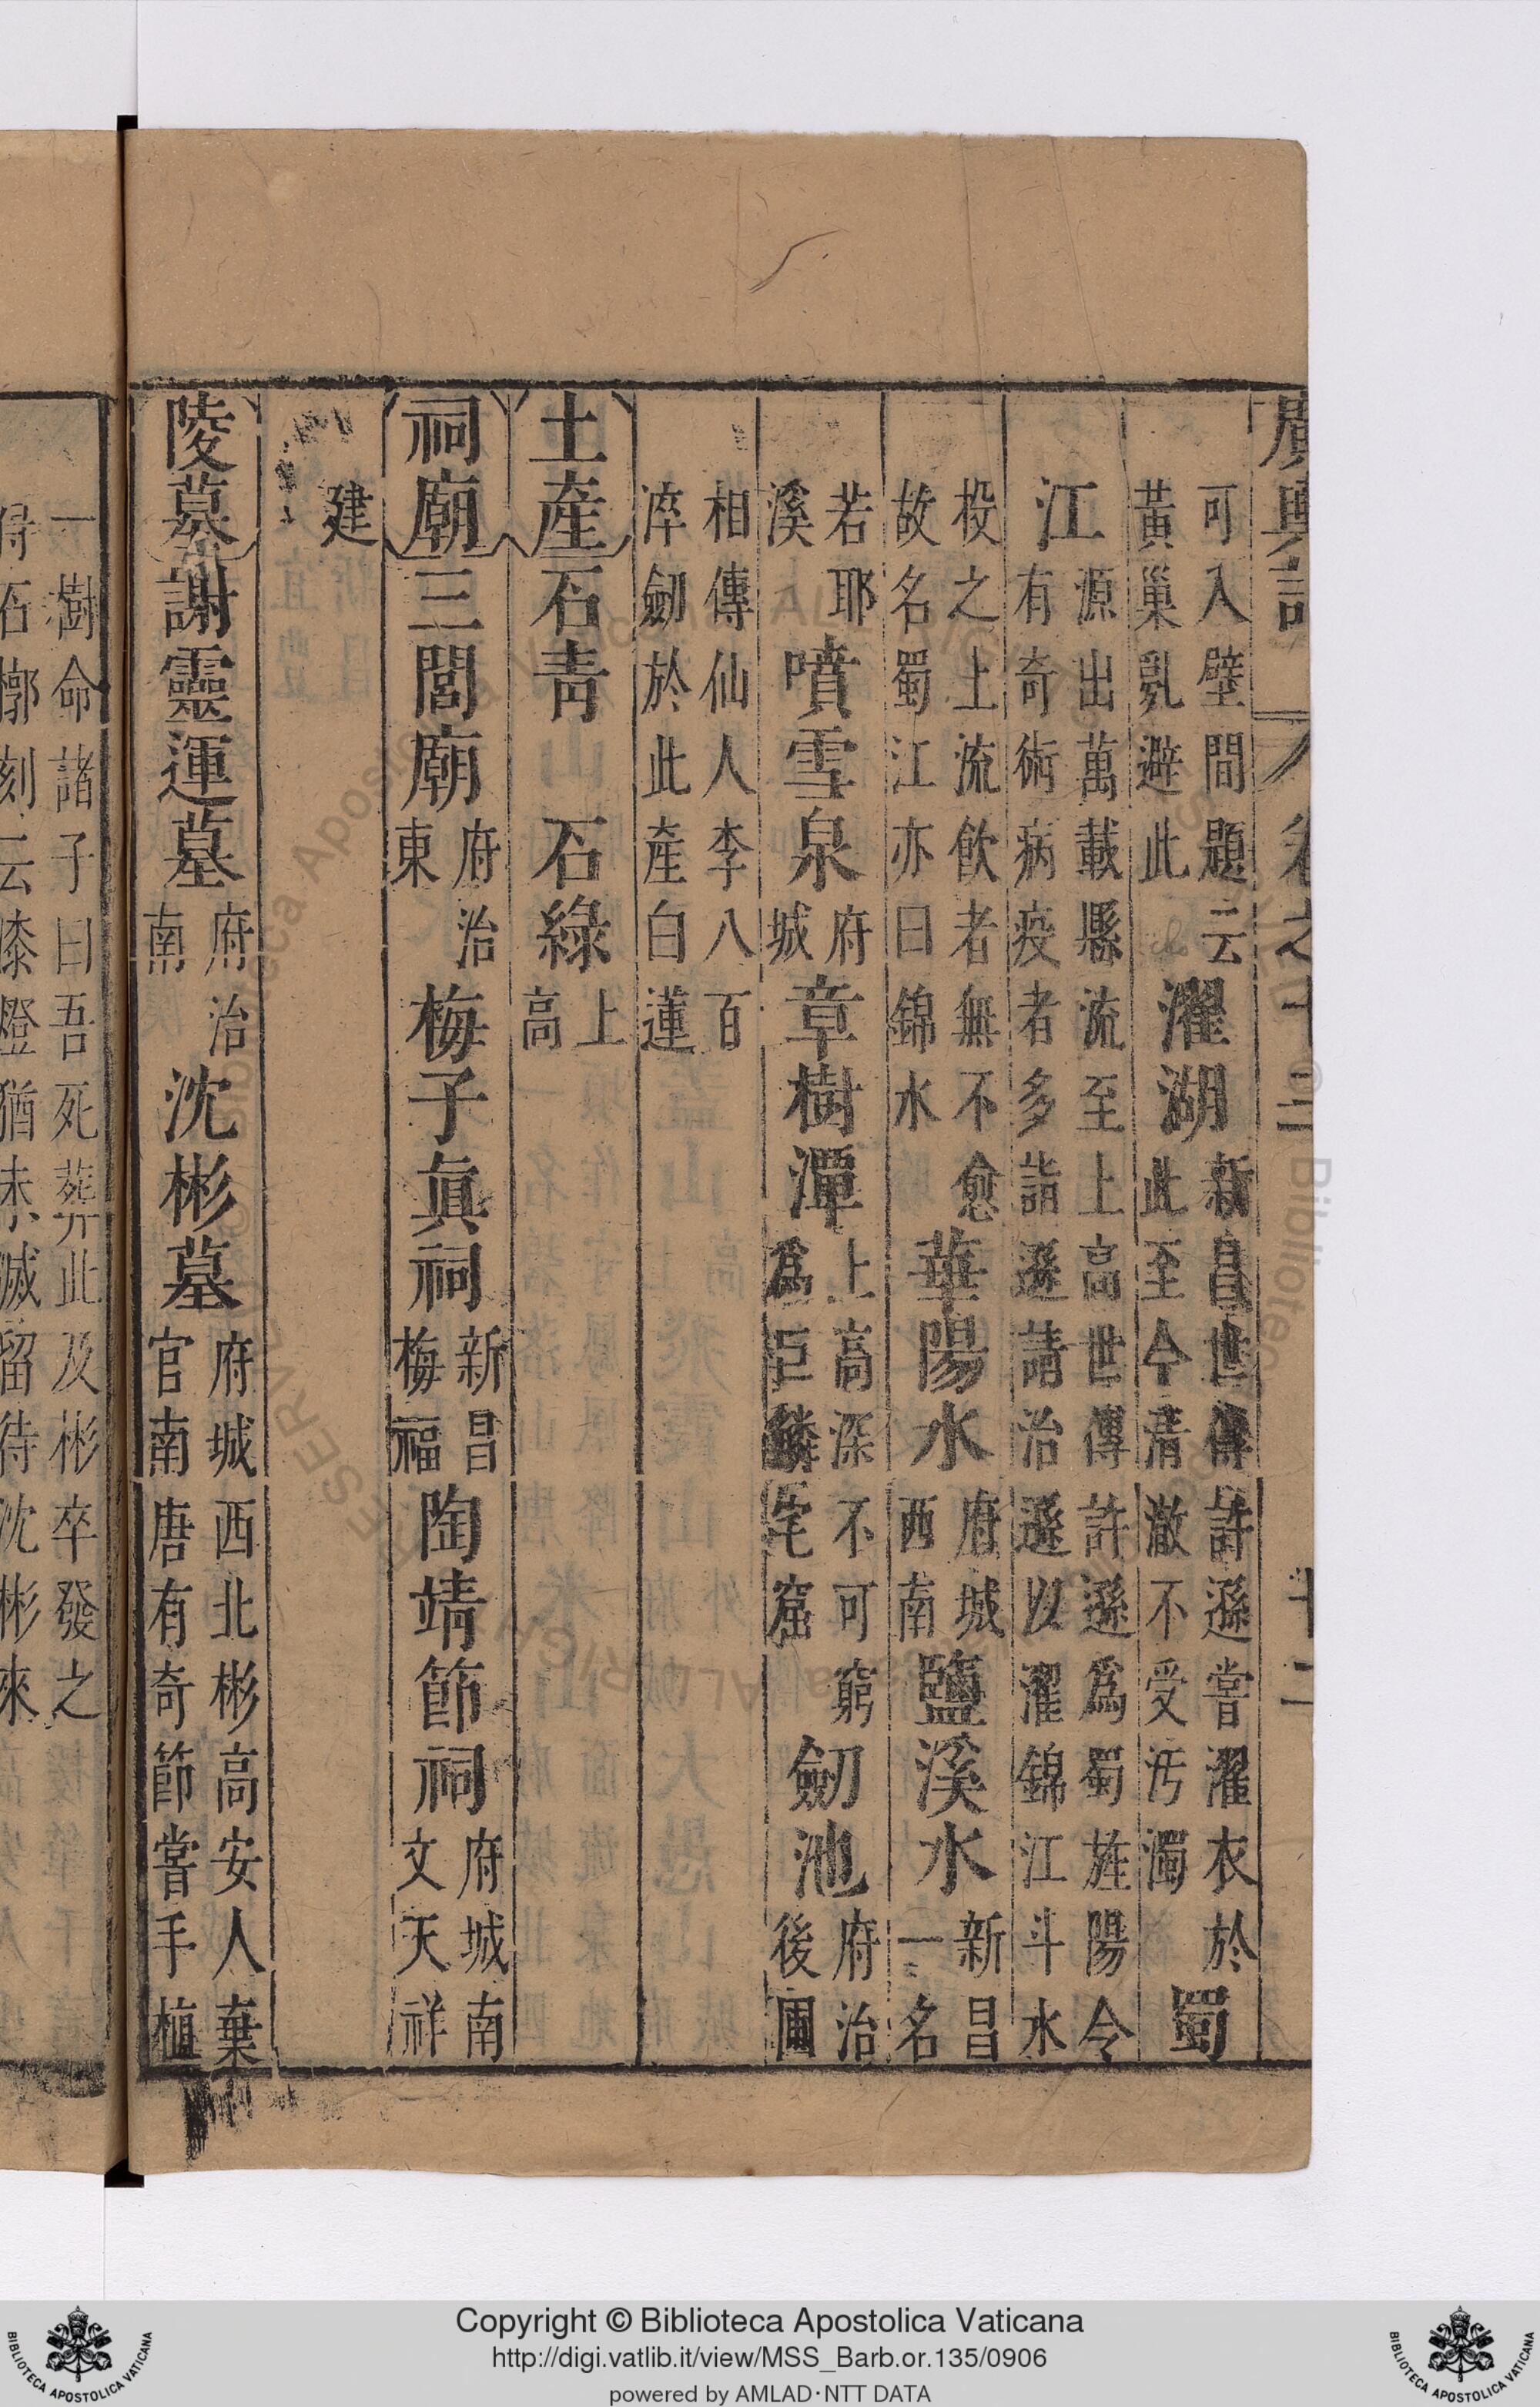 廣輿記 卷之十三 十二
可入壁間題云黃巢亂避此 濯湖 新昌世傳許遜嘗濯衣於此至今清澈不受汚濁 蜀
江 源出萬載縣流至上高世傳許遜爲蜀旌陽令有奇術病疫者多詣遜請治遜以濯錦江斗水
投之上流飲者無不愈故名蜀江亦曰錦水 華陽水 府城西南 鹽溪水 新昌一名
若耶溪 噴雪泉 府城 章樹潭 上高深不可窮爲巨鱗宅窟 劒池 府治後圃
相傳仙人李八百淬劒於此產白蓮
土産 石青 石綠 上高
祠廟 三閭廟 府治東 梅子眞祠 新昌梅福 陶靖節祠 府城南文天祥
建
陵墓 謝靈運墓 府治南 沈彬墓 府城西北彬高安人棄官南唐有奇節嘗手植
一樹命諸子曰吾死葬此及彬卒發之
得石槨刻云漆燈猶未滅留待沈彬來
Copyright © Biblioteca Apostolica Vaticana
http://digi.vatlib.it/view/MSS_Barb.or.135/0906
powered by AMLAD·NTT DATA
BIBLIOTECA APOSTOLICA VATICANA
BIBLIOTECA APOSTOLICA VATICANA